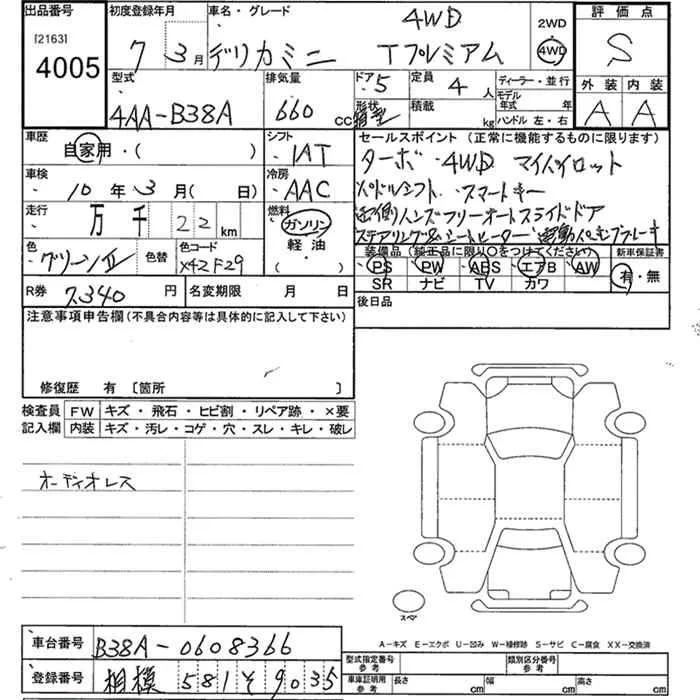 出品番号
[2163]
4005
初度登録年月
7 3月
車名・グレード
4WD
デリカミニ Tプレミアム
2WD
4WD
評価点
S
外装 内装
A A
型式
4AA-B38A
排気量
660 cc
ドア 5
形状 箱型
定員 4 人
積載 kg
ディーラー・並行
モデル年式 年
ハンドル 左・右
車歴
自家用・( )
シフト
IAT
車検
10年3月( 日)
冷房
AAC
走行
万 千 22 km
燃料
ガソリン
軽油
( )
色
グリーンⅡ
色替
色コード
X42 F29
R券 7,340 円
名変期限 月 日
セールスポイント(正常に機能するものに限ります)
ターボ 4WD マイパイロット
パドルシフト スマートキー
両側ハンズフリーオートスライドドア
ステアリング&シートヒーター 電動パーキングブレーキ
装備品(純正品に限り○をつけてください)
PS PW ABS エアB AW
SR ナビ TV カワ
新車保証書
有・無
後日品
注意事項申告欄(不具合内容等は具体的に記入して下さい)
修復歴 有 [箇所 ]
検査員記入欄
FW キズ・飛石・ヒビ割・リペア跡・×要
内装 キズ・汚レ・コゲ・穴・スレ・キレ・破レ
オーディオレス
スペア
A-キズ E-エクボ U-凹み W-補修跡 S-サビ C-腐食 XX-交換済
車台番号 B38A-0608366
登録番号 相模 581 そ 9035
型式指定番号参考
類別区分番号参考
車庫証明用参考 長さ cm 幅 cm 高さ cm